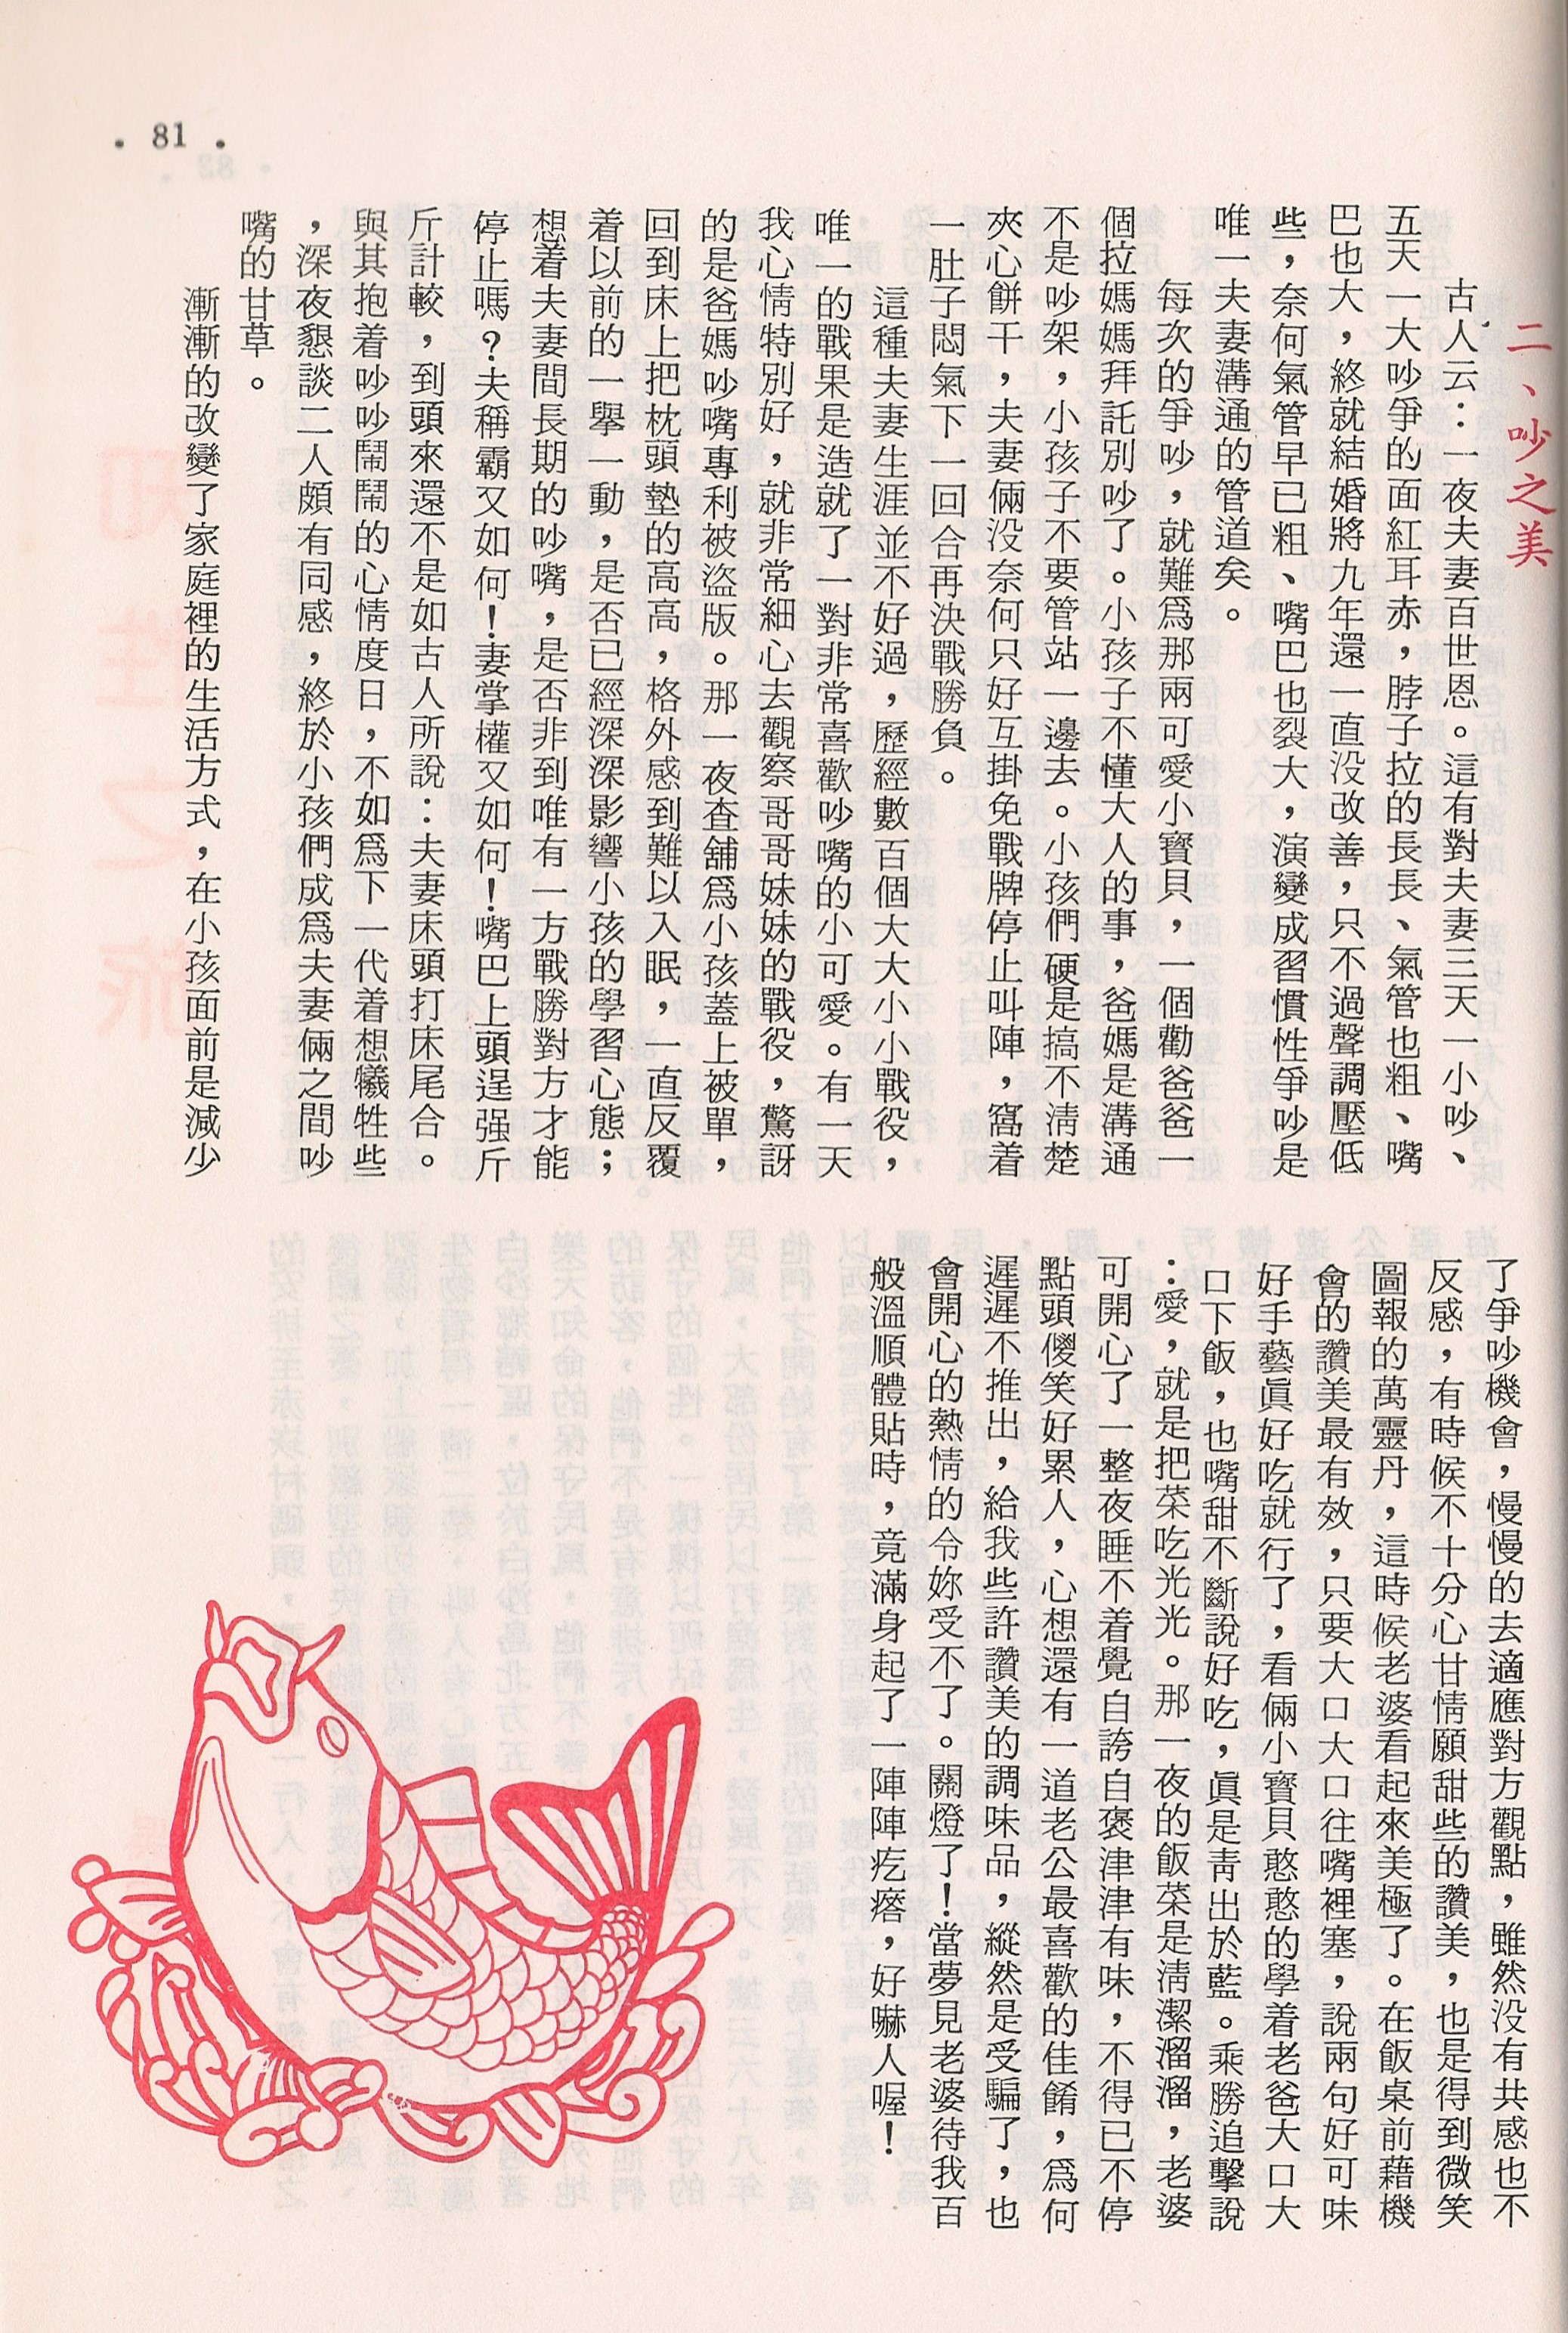 二、吵之美
古人云：一夜夫妻百世恩。這有對夫妻三天一小吵、
五天一大吵爭的面紅耳赤，脖子拉的長長、氣管也粗、嘴
巴也大，終就結婚將九年還一直没改善，只不過聲調壓低
些，奈何氣管早已粗、嘴巴也裂大，演變成習慣性爭吵是
唯一夫妻溝通的管道矣。
每次的爭吵，就難爲那兩可愛小寶貝，一個勸爸爸一
個拉媽媽拜託別吵了。小孩子不懂大人的事，爸媽是溝通
不是吵架，小孩子不要管站一邊去。小孩們硬是搞不淸楚
夾心餅干，夫妻倆没奈何只好互掛免戰牌停止叫陣，窩着
一肚子悶氣下一回合再決戰勝負。
這種夫妻生涯並不好過，歷經數百個大大小小戰役，
唯一的戰果是造就了一對非常喜歡吵嘴的小可愛。有一天
我心情特別好，就非常細心去觀察哥哥妹妹的戰役，驚訝
的是爸媽吵嘴專利被盜版。那一夜查舖爲小孩蓋上被單，
回到床上把枕頭墊的高高，格外感到難以入眠，一直反覆
着以前的一舉一動，是否已經深深影響小孩的學習心態；
想着夫妻間長期的吵嘴，是否非到唯有一方戰勝對方才能
停止嗎？夫稱霸又如何！妻掌權又如何！嘴巴上頭逞强斤
斤計較，到頭來還不是如古人所說：夫妻床頭打床尾合。
與其抱着吵吵鬧鬧的心情度日，不如爲下一代着想犧牲些
，深夜懇談二人頗有同感，終於小孩們成爲夫妻倆之間吵
嘴的甘草。
漸漸的改變了家庭裡的生活方式，在小孩面前是減少
了爭吵機會，慢慢的去適應對方觀點，雖然没有共感也不
反感，有時候不十分心甘情願甜些的讚美，也是得到微笑
圖報的萬靈丹，這時候老婆看起來美極了。在飯桌前藉機
會的讚美最有效，只要大口大口往嘴裡塞，說兩句好可味
好手藝眞好吃就行了，看倆小寶貝憨憨的學着老爸大口大
口下飯，也嘴甜不斷說好吃，眞是靑出於藍。乘勝追擊說
：愛，就是把菜吃光光。那一夜的飯菜是淸潔溜溜，老婆
可開心了一整夜睡不着覺自誇自褒津津有味，不得已不停
點頭儍笑好累人，心想還有一道老公最喜歡的佳餚，爲何
遲遲不推出，給我些許讚美的調味品，縱然是受騙了，也
會開心的熱情的令妳受不了。關燈了！當夢見老婆待我百
般溫順體貼時，竟滿身起了一陣陣疙瘩，好嚇人喔！
• 81 •